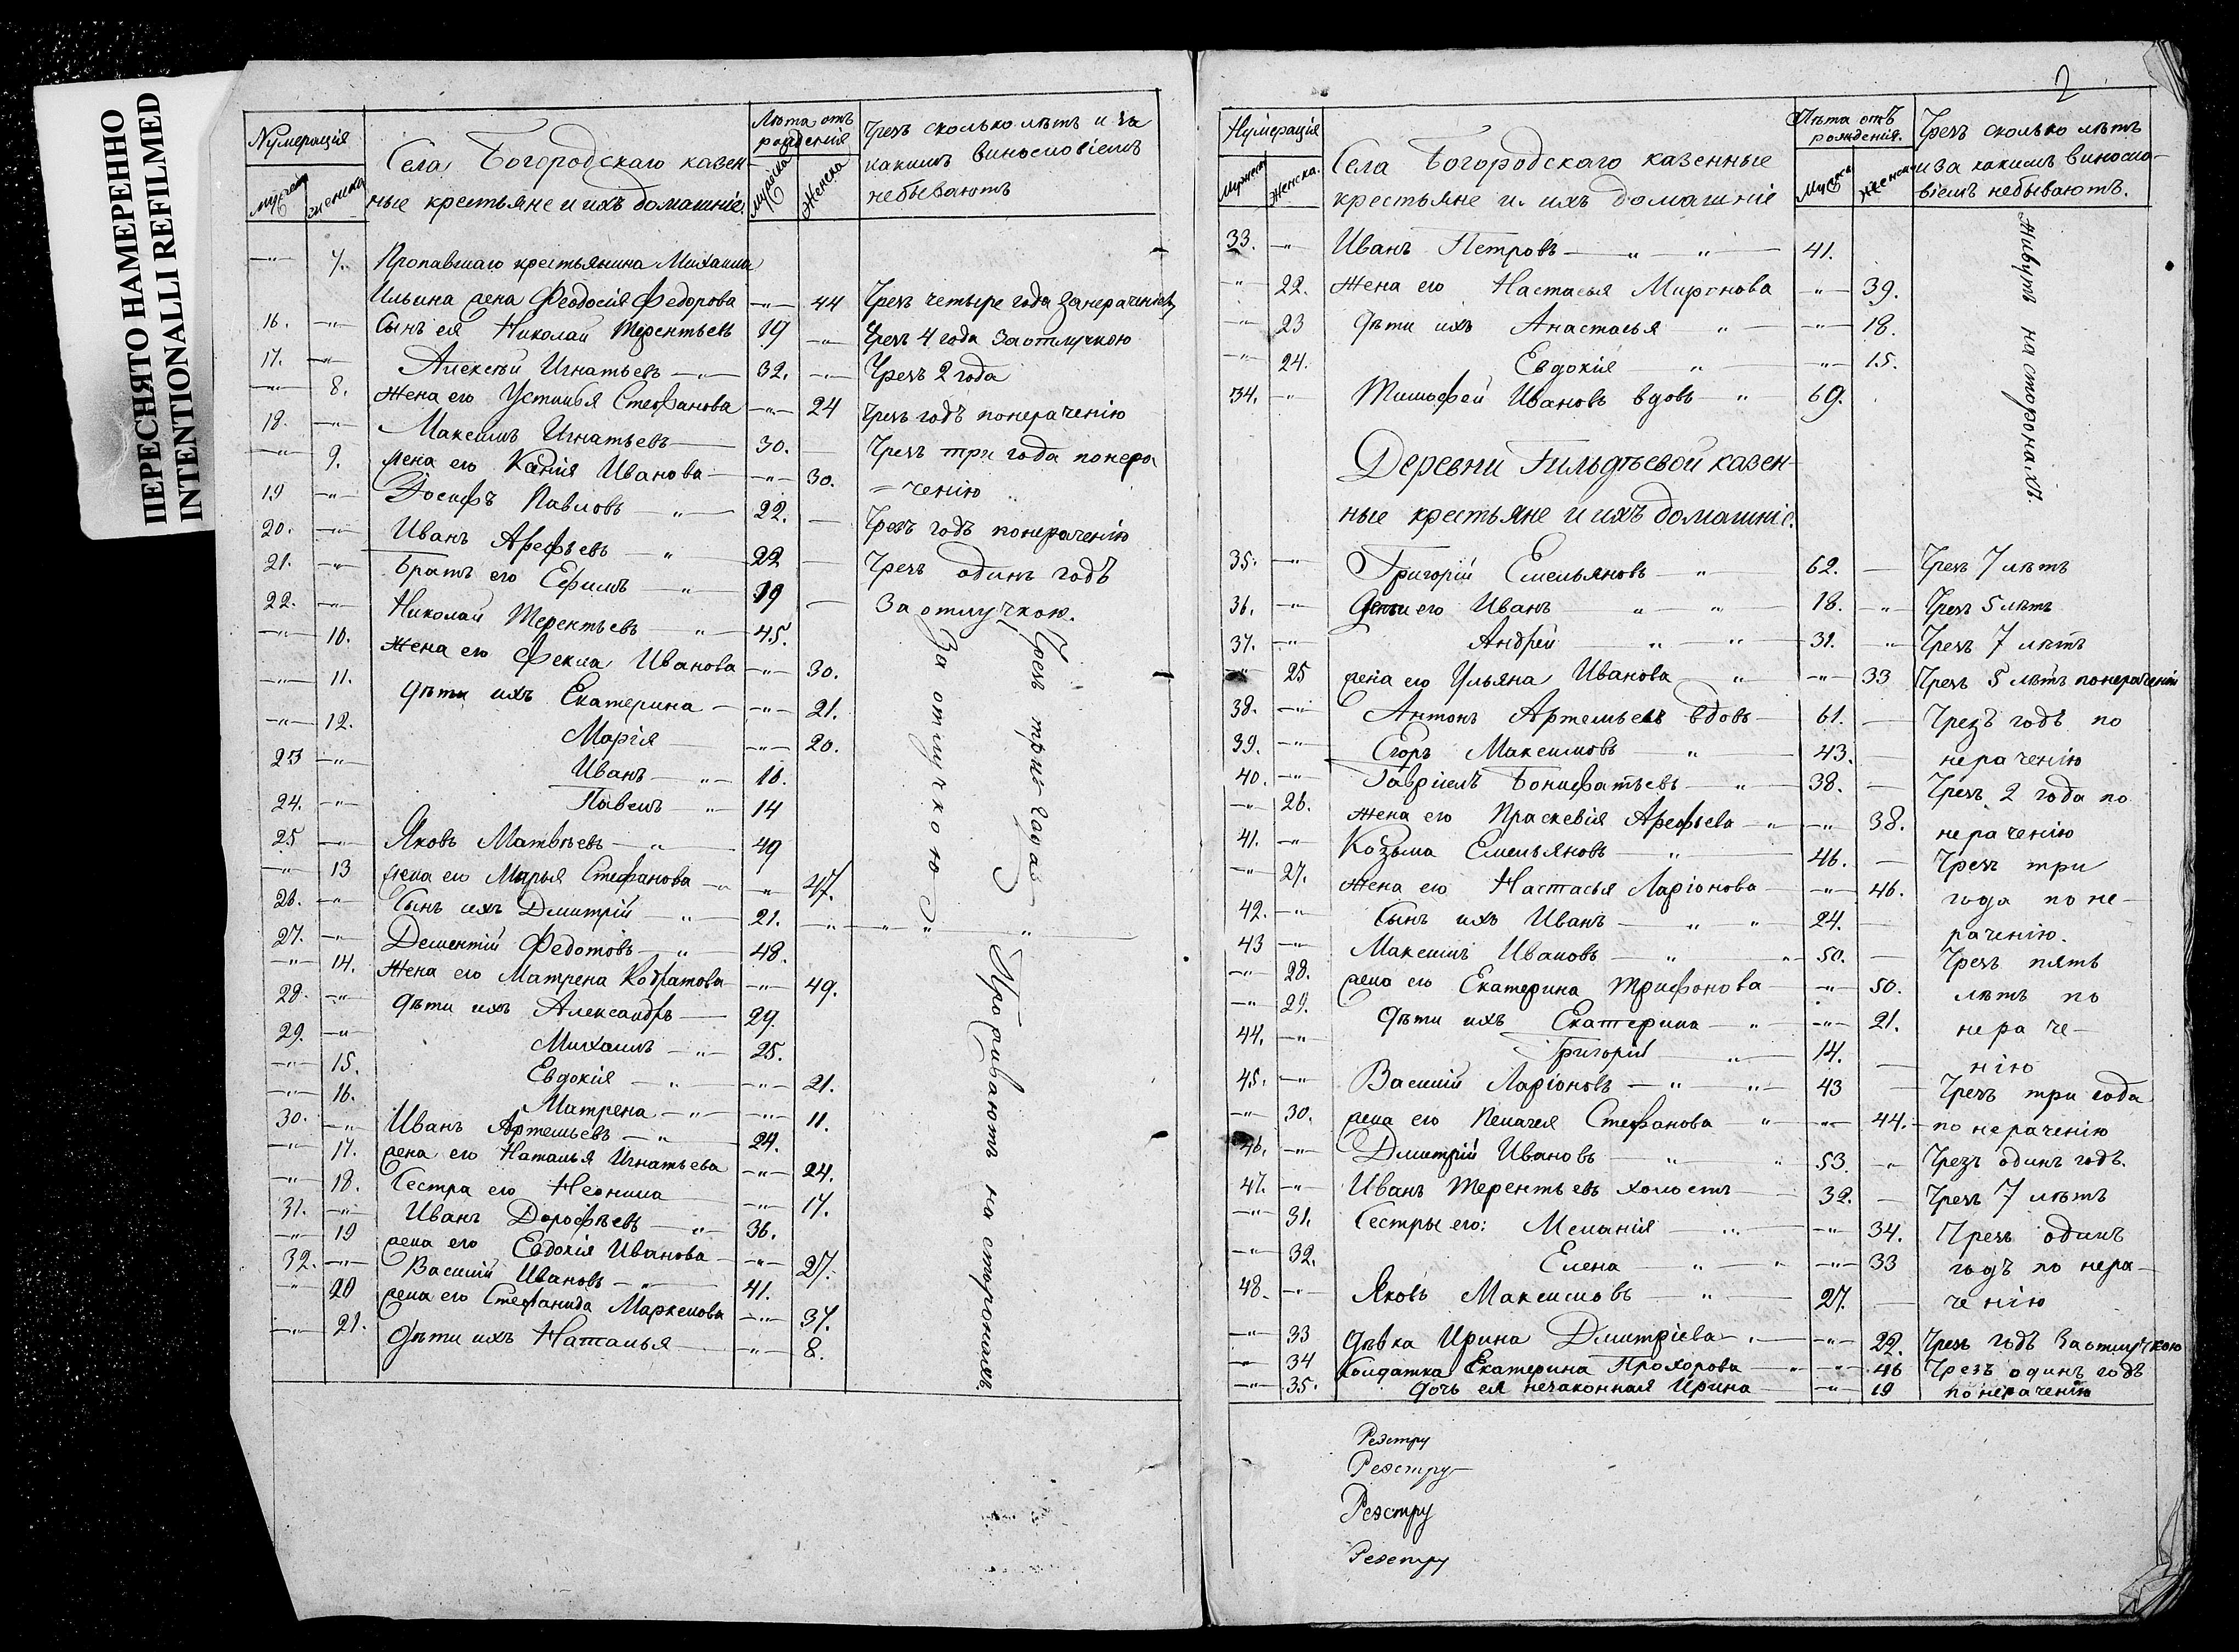 ПЕРЕСНЯТО НАМЕРЕННО
INTENTIONALLI REFILMED
Нумерація
мужеск
женска
Села Богородскаго казен-
ные крестьяне и ихъ домашніе.
Лѣта отъ
рожденія
Мужеска
Женска
Чрезъ сколько лѣтъ и за
какимъ винословіемъ
небываютъ
—"— 7. Пропавшаго крестьянина Михаила
Ильина жена Феодосія Федорова —"— 44 Чрезъ четыре года занераченіемъ
16. —"— Сынъ ея Николай Терентьевъ 19 —"— Чрезъ 4 года За отлучкою
17. —"— Алексѣй Игнатьевъ —"— 32. —"— Чрезъ 2 года
—"— 8. Жена его Устинья Стефанова —"— 24 Чрезъ годъ понераченію
18. —"— Максимъ Игнатьевъ — 30. — Чрезъ три года понера
—"— 9. жена его Ксенія Иванова —"— 30. = ченію
19 —"— Іосифъ Павловъ —"— 22. — Чрезъ годъ понераченію
20. —"— Иванъ Арефьевъ —"— 22 — Чрезъ одинъ годъ
21. —"— Братъ его Ефимъ —"— 19 — За отлучкою.
22. —"— Николай Терентьевъ —"— 45.
—"— 10. Жена его Фекла Иванова —"— 30.
—"— 11. Дѣти ихъ Екатерина —"— 21.
—"— 12. Марія —"— 20.
23 —"— Иванъ —"— 16.
24. —"— Павелъ —"— 14
25 —"— Яковъ Матвѣевъ —"— 49
—"— 13 жена его Марья Стефанова —"— 47.
26. —"— Сынъ ихъ Дмитрій —"— 21.
Чрезъ три года
За отлучкою
27. —"— Дементій Федотовъ —"— 48.
—"— 14. Жена его Матрена Кодратова —"— 49.
28. —"— Дѣти ихъ Александръ — 29.
29. —"— Михаилъ —"— 25.
—"— 15. Евдокія —"— 21.
—"— 16. Матрена —"— 11.
30. —"— Иванъ Артемьевъ —"— 24.
—"— 17. жена его Наталья Игнатьева —"— 24.
—"— 18. Сестра его Неонила —"— 17.
31. —"— Иванъ Дорофѣевъ —"— 36.
—"— 19 жена его Евдокія Иванова —"— 27.
32. —"— Василій Ивановъ —"— 41.
—"— 20 жена его Стефанида Маркелова —"— 37.
—"— 21. Дѣти ихъ Наталья —"— 8.
Проживаютъ на сторонахъ.
2
Нумерація
Мужеск
Женска.
Села Богородскаго казенные
крестьяне и ихъ домашніе
Лѣта отъ
рожденія.
Мужеск
женска
Чрезъ сколько лѣтъ
и за какимъ виносло-
віемъ небываютъ.
33. —"— Иванъ Петровъ —"— 41.
—"— 22. Жена его Настасья Миронова —"— 39.
—"— 23 Дѣти ихъ Анастасья —"— 18.
—"— 24. Евдокія —"— 15.
34. —"— Тимофей Ивановъ вдовъ —"— 69.
Живутъ на сторонахъ.
Деревни Гильдѣевой казен-
ные крестьяне и ихъ домашніе.
35. —"— Григорій Емельяновъ —"— 62. — Чрезъ 7 лѣтъ
36. —"— Дѣти его Иванъ —"— 18. —"— Чрезъ 5 лѣтъ
37. —"— Андрей —"— 31. —"— Чрезъ 7 лѣтъ
—"— 25 жена его Ульяна Иванова —"— 33 Чрезъ 5 лѣтъ понераченію
38. —"— Антонъ Артемьевъ вдовъ — 61. — Чрезъ годъ по
39. —"— Егоръ Максимовъ —"— 43. — нераченію
40. —"— Гавріилъ Бонифатьевъ —"— 38. — Чрезъ 2 года по
—"— 26. Жена его Праскевія Арефьева —"— 38. нераченію
41. —"— Козьма Емельяновъ —"— 46. — Чрезъ три
—"— 27. Жена его Настасья Ларіонова —"— 46. года по не-
42. —"— Сынъ ихъ Иванъ —"— 24. — раченію.
43 —"— Максимъ Ивановъ —"— 50. — Чрезъ пять
—"— 28. жена его Екатерина Трифонова —"— 50. лѣтъ по
—"— 29. Дѣти ихъ Екатерина —"— 21. нераче-
44. —"— Григорій —"— 14. — нію
45. —"— Василій Ларіоновъ —"— 43 — Чрезъ три года
—"— 30. жена его Пелагея Стефанова —"— 44. — по нераченію
46. —"— Дмитрій Ивановъ —"— 53. —"— Чрезъ одинъ годъ.
47. —"— Иванъ Терентьевъ холостъ — 32. — Чрезъ 7 лѣтъ
—"— 31. Сестры его: Меланія —"— 34. Чрезъ одинъ
—"— 32. Елена —"— 33 годъ по нера-
48. —"— Яковъ Максимовъ —"— 27. — ченію
—"— 33 Дѣвка Ирина Дмитріева —"— 22. Чрезъ годъ За отлучкою
—"— 34 Солдатка Екатерина Прохорова —"— 46 Чрезъ одинъ годъ
—"— 35. Дочь ея незаконная Ирина —"— 19 по нераченію
Реэстру
Реэстру
Реэстру
Реэстру